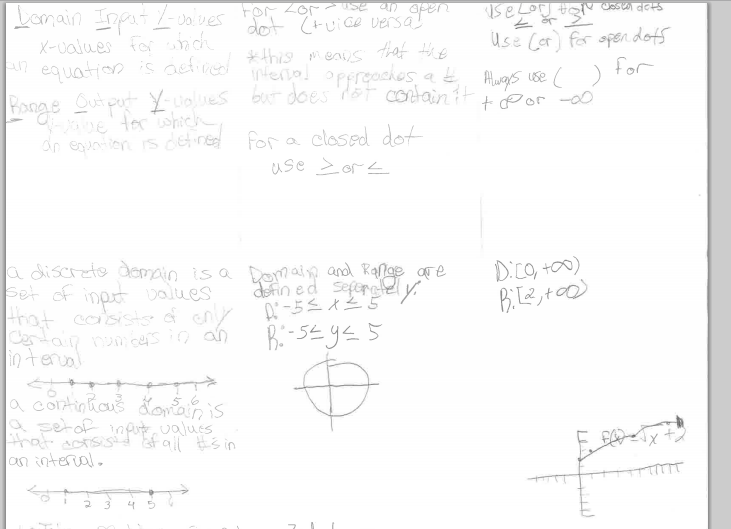 Domain Input X-values
x-values for which
an equation is defined
Range Output Y-values
y-value for which
an equation is defined
For < or > use an open
dot (+ vice versa)
*this means that the
interval approaches a #
but does not contain it
For a closed dot
use ≥ or ≤
Use [ or ] for closed dots
≤ or ≥
Use ( or ) for open dots
Always use ( ) for
+∞ or -∞
a discrete domain is a
set of input values
that consists of only
certain numbers in an
interval
0 2 3 4 5 6
a continuous domain is
a set of input values
that consists of all #s in
an interval.
0 1 2 3 4 5 6
Domain and Range are
defined seperately.
D: -5 ≤ x ≤ 5
R: -5 ≤ y ≤ 5
D: [0, +∞)
R: [2, +∞)
f(x) = √x + 2